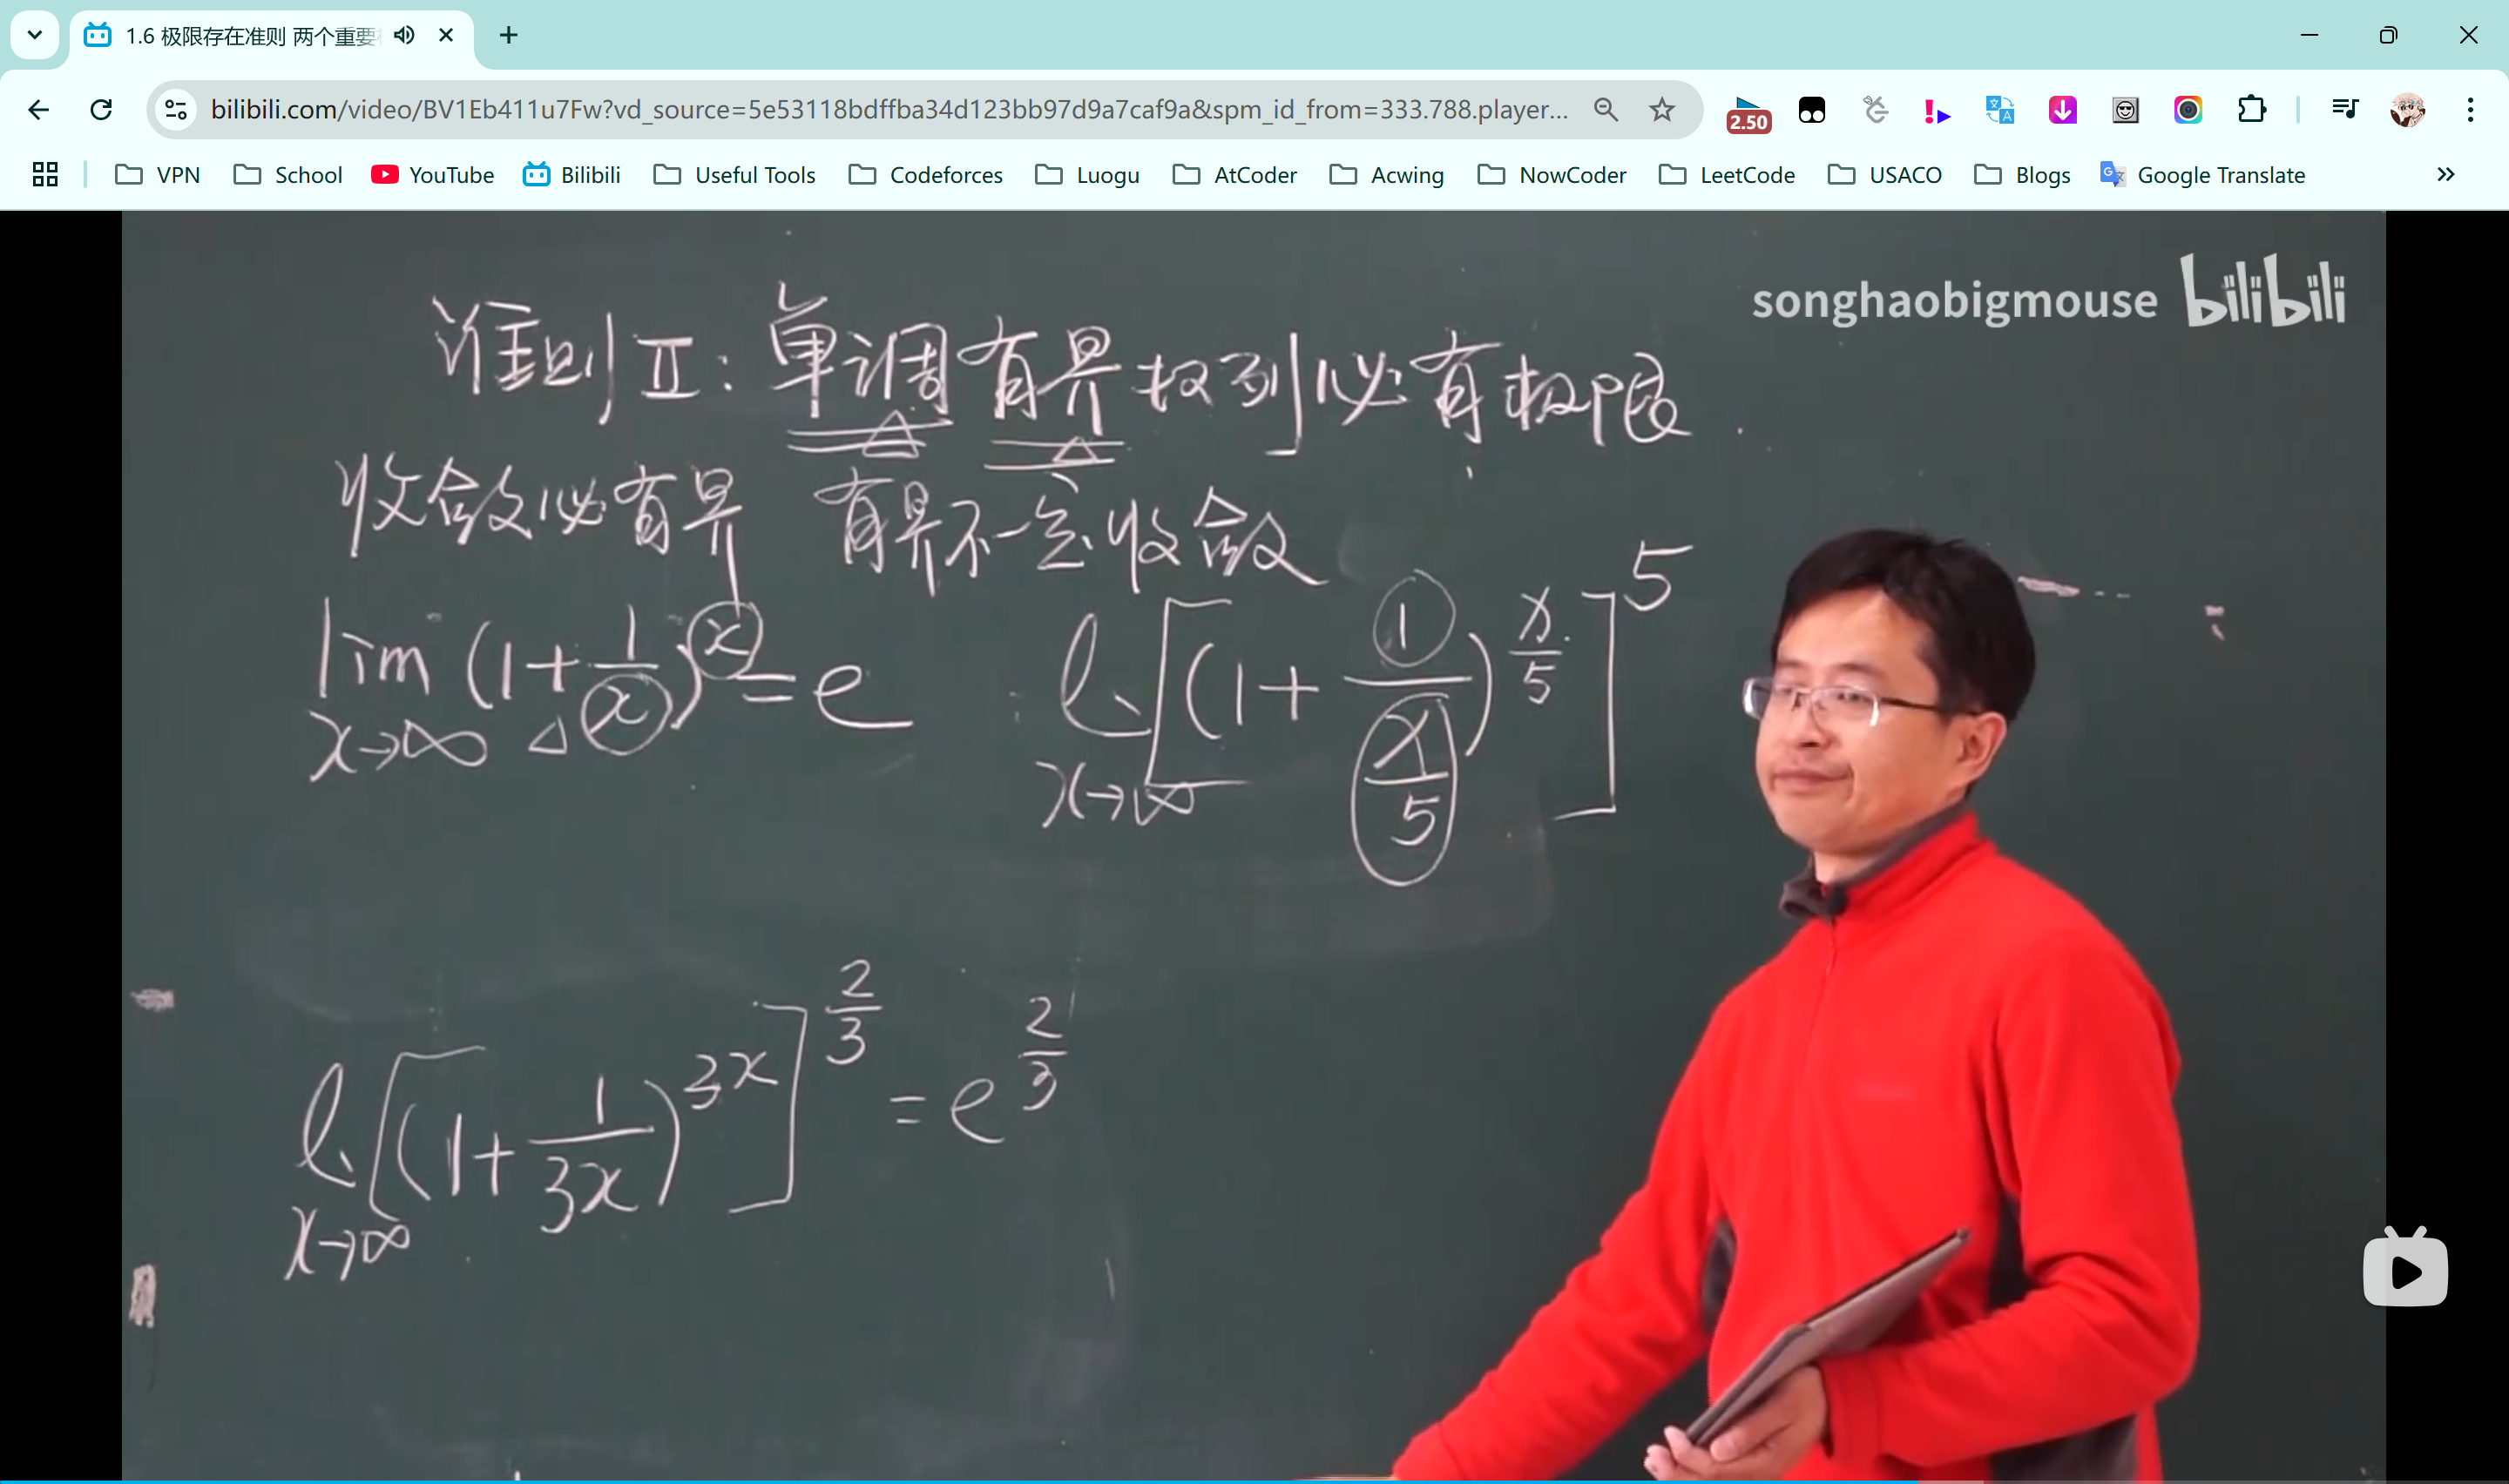 1.6 极限存在准则 两个重要
bilibili.com/video/BV1Eb411u7Fw?vd_source=5e53118bdffba34d123bb97d9a7caf9a&spm_id_from=333.788.player...
2.50
VPN School YouTube Bilibili Useful Tools Codeforces Luogu AtCoder Acwing NowCoder LeetCode USACO Blogs Google Translate
songhaobigmouse bilibili
准则Ⅱ:单调有界数列必有极限.
收敛必有界 有界不一定收敛
lim (1+1/x)^x = e
x→∞
l. [(1+1/(x/5))^(x/5)]^5
x→∞
l. [(1+1/(3x))^(3x)]^(2/3) = e^(2/3)
x→∞